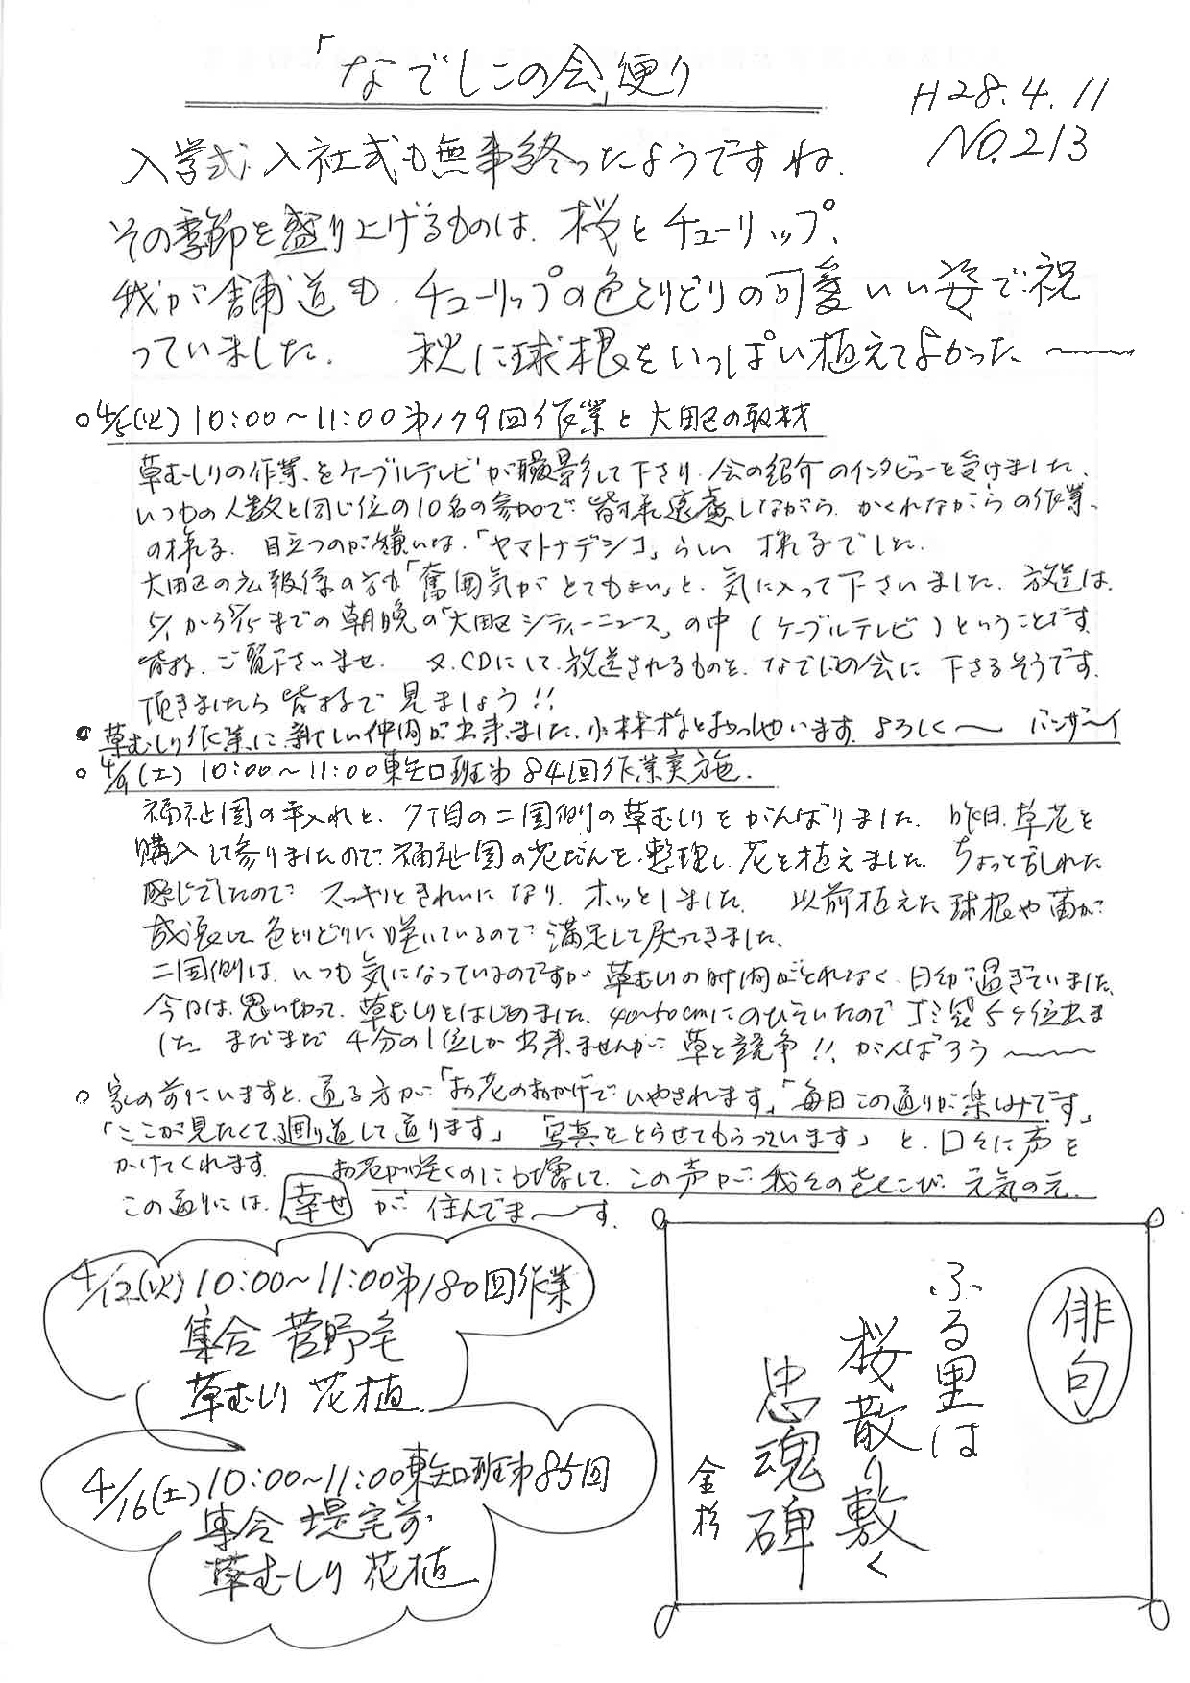 「なでしこの会」便り
H28.4.11
NO.213
入学式、入社式も無事終ったようですね。
その季節を盛り上げるものは、桜とチューリップ。
我が舗道も、チューリップの色とりどりの可愛いい姿で祝
っていました。 秋に球根をいっぱい植えてよかった〜
○4/5(火)10:00〜11:00第179回作業と大田区の取材
草むしりの作業をケーブルテレビが撮影して下さり、会の紹介のインタビューを受けました。
いつもの人数と同じ位の10名の参加で皆様遠慮しながら、かくれながらの作業、
の様子。 目立つのが嫌いな、「ヤマトナデシコ」らしい 様子でした。
大田区の広報係の方も「雰囲気がとてもよい」と、気に入って下さいました。放送は、
5/1から5/15までの朝晩の「大田区シティーニュース」の中(ケーブルテレビ)ということです。
皆様、ご覧下さいませ。 又、CDにして放送されるものを、なでしこの会に下さるそうです。
頂きましたら皆様で見ましょう!!
●草むしり作業に新しい仲間が出来ました。小林様とおっしゃいます。よろしく〜 バンザーイ
○4/9(土)10:00〜11:00東矢口班第84回作業実施。
福祉園の手入れと、7丁目の二国側の草むしりをがんばりました。昨日、草花を
購入して参りましたので、福祉園の花だんを整理し、花を植えました。ちょっと乱れた
感じでしたので、スッキリときれいになり、ホッとしました。 以前植えた球根や苗が
成長して色とりどりに咲いているので満足して戻ってきました。
二国側は、いつも気になっているのですが草むしりの時間がとれなく、日が過ぎていました。
今日は、思い切って、草むしりをはじめました。40〜50cmにのびていたのでゴミ袋5ヶ位出ま
した。まだまだ 4分の1位しか出来ませんが草と競争!!がんばろう〜
○家の前にいますと、通る方が「お花のおかげでいやされます」「毎日この通りが楽しみです」
「ここが見たくて、廻り道して通ります」「写真をとらせてもらっています」と、口々に声を
かけてくれます。 お花が咲くのにも増して、この声が我々のよろこび、元気の元。
この通りには、幸せが住んでま〜す。
4/12(火)10:00〜11:00第180回作業
集合 菅野宅
草むしり 花植
4/16(土)10:00〜11:00東矢口班第85回
集合 堤宅前
草むしり 花植
俳句
ふる里は
桜散り敷く
忠魂碑
金杉